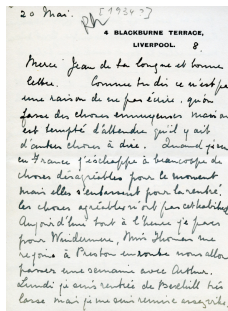 20 Mai.
[1934?]
4 BLACKBURNE TERRACE,
LIVERPOOL. 8.
Merci Jean de ta longue et bonne
lettre. Comme tu dis ce n'est pas
une raison de ne pas écrire qu'on
fasse des choses ennuyeuses mais on
est tempté d'attendre qu'il y ait
d'autres choses à dire. Quand j'
en France j'échappe à beaucoup de
choses désagréables pour le moment
mais elles s'entassent pour la rentrée
les choses agréables n'ont pas
Aujourd'hui tout à l'heure je pars
pour Windermere, Miss Thomas me
à Preston en route nous allons
passer une semaine avec Arthur.
Lundi je suis rentrée de Bexhill très
lasse mais je me suis remise assez vite.